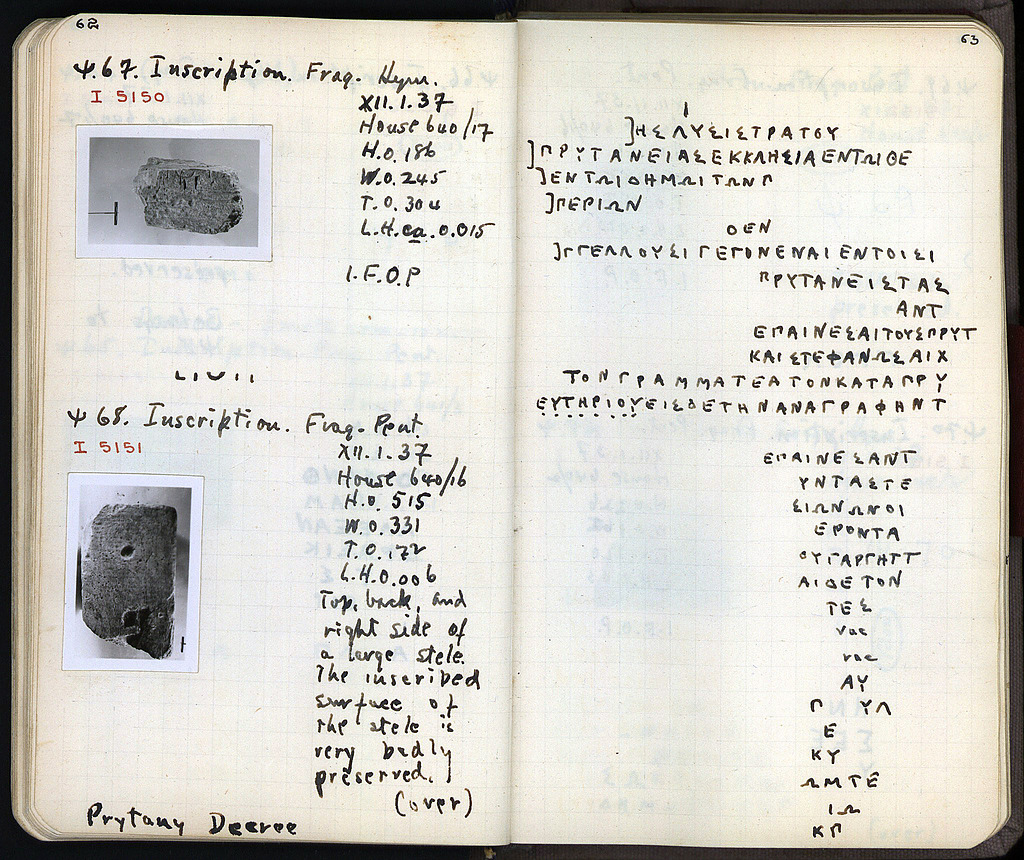 62
Ψ.67. Inscription. Frag. Hym.
I 5150
XII.1.37
House 640/17
H.0.186
W.0.245
T.0.304
L.H.ca.0.015
I.F.O.P
Ψ 68. Inscription. Frag. Pent.
I 5151
XII.1.37
House 640/16
H.0.515
W.0.331
T.0.172
L.H.0.006
Top, back, and
right side of
a large stele.
The inscribed
surface of
the stele is
very badly
preserved.
(over)
Prytany Decree
63
]ΗΣΛΥΣΙΣΤΡΑΤΟΥ
]ΠΡΥΤΑΝΕΙΑΣΕΚΚΛΗΣΙΑΕΝΤΩΙΘΕ
]ΕΝΤΩΙΔΗΜΩΙΤΩΝΠ
]ΠΕΡΙΩΝ
ΟΕΝ
]ΓΓΕΛΛΟΥΣΙΓΕΓΟΝΕΝΑΙΕΝΤΟΙΣΙ
ΠΡΥΤΑΝΕΙΣΤΑΣ
ΑΝΤ
ΕΠΑΙΝΕΣΑΙΤΟΥΣΠΡΥΤ
ΚΑΙΣΤΕΦΑΝΩΣΑΙΧ
ΤΟΝΓΡΑΜΜΑΤΕΑΤΟΝΚΑΤΑΠΡΥ
ΕΥΤΗΡΙΟΥΕΙΣΔΕΤΗΝΑΝΑΓΡΑΦΗΝΤ
ΕΠΑΙΝΕΣΑΝΤ
ΥΝΤΑΣΤΕ
ΣΙΩΝΩΝΟΙ
ΕΡΟΝΤΑ
ΟΥΓΑΡΓΗΤΤ
ΑΙΔΕΤΟΝ
ΤΕΣ
vac
vac
ΑΥ
Π ΥΛ
Ε
ΚΥ
ΩΜΤΕ
ΙΩ
ΚΠ